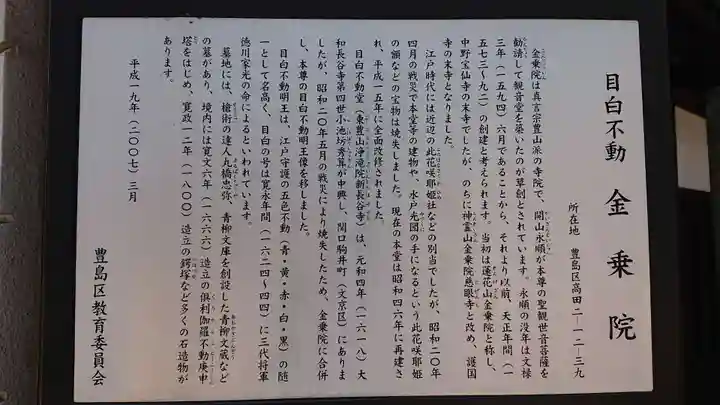 目白不動 金乗院
所在地 豊島区高田二―一二―三九
金乗院は真言宗豊山派の寺院で、開山永順が本尊の聖観世音菩薩を
勧請して観音堂を築いたのが草創とされています。永順の没年は文禄
三年(一五九四)六月であることから、それより以前、天正年間(一
五七三~九二)の創建と考えられます。当初は蓮花山金乗院と称し、
中野宝仙寺の末寺でしたが、のちに神霊山金乗院慈眼寺と改め、護国
寺の末寺となりました。
江戸時代には近辺の此花咲耶姫社などの別当でしたが、昭和二〇年
四月の戦災で本堂等の建物や、水戸光圀の手になるという此花咲耶姫
の額などの宝物は焼失しました。現在の本堂は昭和四六年に再建さ
れ、平成一五年に全面改修されました。
目白不動堂(東豊山浄滝院新長谷寺)は、元和四年(一六一八)大
和長谷寺第四世小池坊秀算が中興し、関口駒井町(文京区)にありま
したが、昭和二〇年五月の戦災により焼失したため、金乗院に合併
し、本尊の目白不動明王像を移しました。
目白不動明王は、江戸守護の五色不動(青・黄・赤・白・黒)の随
一として名高く、目白の号は寛永年間(一六二四~四四)に三代将軍
徳川家光の命によるといわれています。
墓地には、槍術の達人丸橋忠弥、青柳文庫を創設した青柳文蔵など
の墓があり、境内には寛文六年(一六六六)造立の倶利伽羅不動庚申
塔をはじめ、寛政一二年(一八〇〇)造立の鍔塚など多くの石造物が
あります。
平成一九年(二〇〇七)三月
豊島区教育委員会